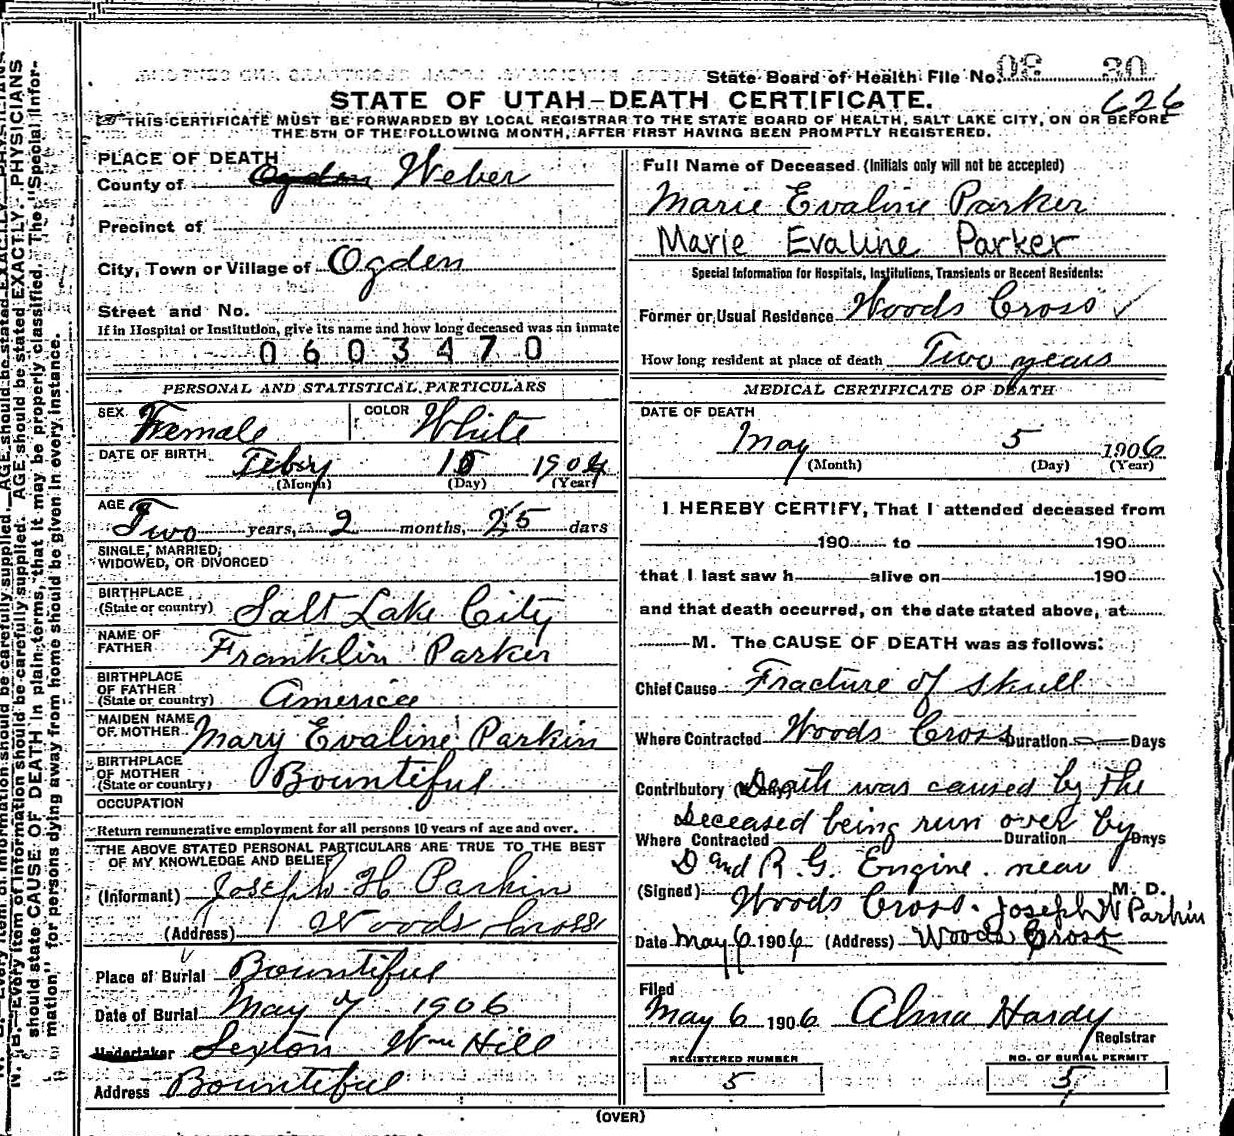 State Board of Health File No. 08 30
STATE OF UTAH—DEATH CERTIFICATE.
626
THIS CERTIFICATE MUST BE FORWARDED BY LOCAL REGISTRAR TO THE STATE BOARD OF HEALTH, SALT LAKE CITY, ON OR BEFORE
THE 5TH OF THE FOLLOWING MONTH, AFTER FIRST HAVING BEEN PROMPTLY REGISTERED.
PLACE OF DEATH
County of Ogden Weber
Precinct of
City, Town or Village of Ogden
Street and No.
If in Hospital or Institution, give its name and how long deceased was an inmate
0603470
PERSONAL AND STATISTICAL PARTICULARS
SEX Female COLOR White
DATE OF BIRTH Feby 10 1904
(Month) (Day) (Year)
AGE Two years, 2 months, 25 days
SINGLE, MARRIED,
WIDOWED, OR DIVORCED
BIRTHPLACE
(State or country) Salt Lake City
NAME OF
FATHER Franklin Parker
BIRTHPLACE
OF FATHER
(State or country) America
MAIDEN NAME
OF MOTHER Mary Evaline Parkin
BIRTHPLACE
OF MOTHER
(State or country) Bountiful
OCCUPATION
Return remunerative employment for all persons 10 years of age and over.
THE ABOVE STATED PERSONAL PARTICULARS ARE TRUE TO THE BEST
OF MY KNOWLEDGE AND BELIEF
(Informant) Joseph H Parkin
(Address) Woods Cross
Place of Burial Bountiful
Date of Burial May 7 1906
Undertaker Sexton Wm Hill
Address Bountiful
Full Name of Deceased (Initials only will not be accepted)
Marie Evaline Parker
Marie Evaline Parker
Special Information for Hospitals, Institutions, Transients or Recent Residents:
Former or Usual Residence Woods Cross ✓
How long resident at place of death Two years
MEDICAL CERTIFICATE OF DEATH
DATE OF DEATH
May 5 1906
(Month) (Day) (Year)
I HEREBY CERTIFY, That I attended deceased from
190 to 190
that I last saw h alive on 190
and that death occurred, on the date stated above, at
M. The CAUSE OF DEATH was as follows:
Chief Cause Fracture of Skull
Where Contracted Woods Cross Duration Days
Contributory Death was caused by the
Deceased being run over by
Where Contracted Duration Days
D and R.G. Engine near
(Signed) Woods Cross. Joseph W Parkin M. D.
Date May 6 1906 (Address) Woods Cross
Filed
May 6 1906 Alma Hardy
Registrar
REGISTERED NUMBER
5
NO. OF BURIAL PERMIT
5
(OVER)
N. B.—Every item of information should be carefully supplied. AGE should be stated EXACTLY. PHYSICIANS
should state CAUSE OF DEATH in plain terms, that it may be properly classified. The "Special Infor-
mation" for persons dying away from home should be given in every instance.